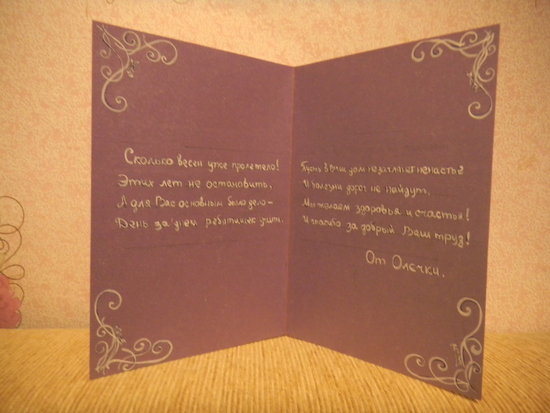 Сколько весен уже пролетело!
Этих лет не остановить.
А для Вас основным было дело–
День за днём ребятишек учить.
Пусть в Ваш дом не заглянет ненастье
И болезни дорог не найдут.
Мы желаем здоровья и счастья!
И спасибо за добрый Ваш труд!
От Олечки.